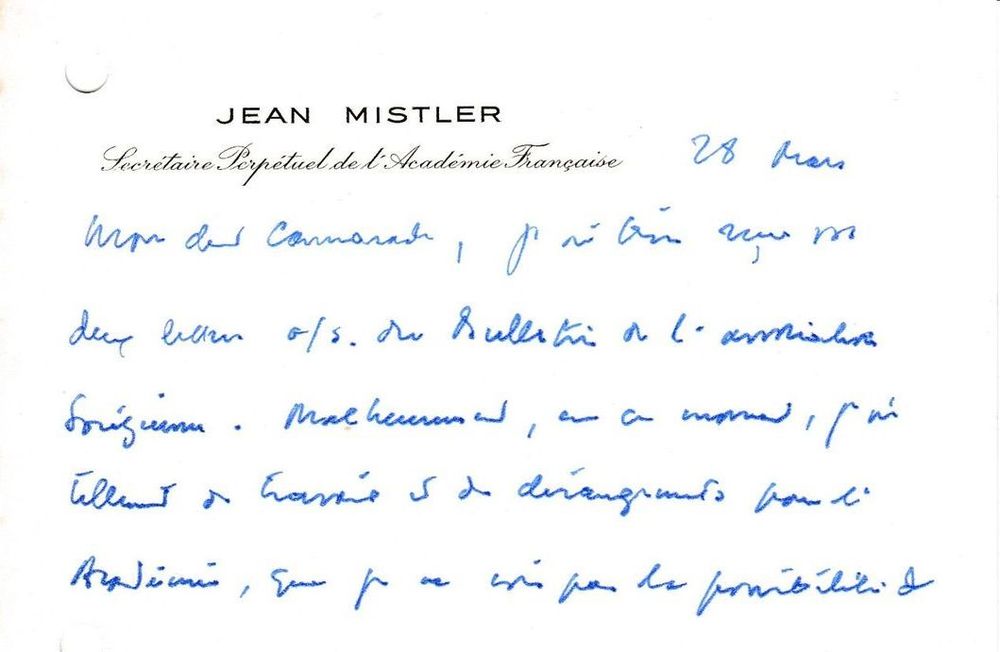 JEAN MISTLER
Secrétaire Perpétuel de l'Académie Française
28 Mars
Mon cher Camarade, j'ai bien reçu vos
deux lettres a/s. du Bulletin de l'association
Sorézienne. Malheureusement, en ce moment, j'ai
tellement de travail et de dérangements pour l'
Académie, que je ne vois pas la possibilité de